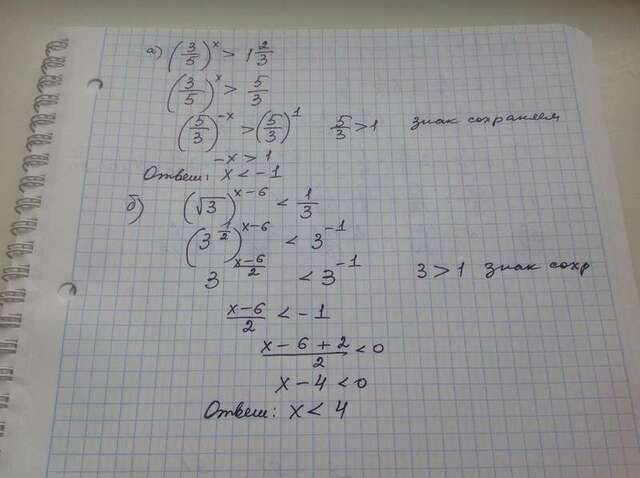 а) (3/5)^x > 1 2/3
(3/5)^x > 5/3
(5/3)^-x > (5/3)^1 5/3 > 1 знак сохраняем
-x > 1
Ответ: x < -1
б) (√3)^x-6 < 1/3
(3^1/2)^x-6 < 3^-1
3^x-6/2 < 3^-1 3 > 1 знак сохр
x-6/2 < -1
x-6+2/2 < 0
x-4 < 0
Ответ: x < 4